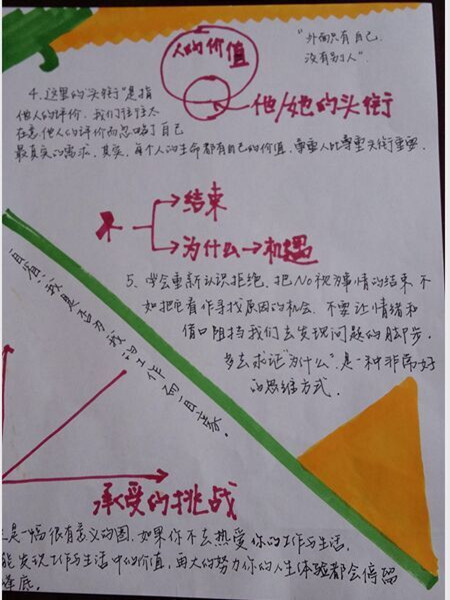 人的价值
"外面只有自己，
没有别人"
他/她的头衔
4、这里的"头衔"是指
他人的评价，我们往往太
在意他人的评价而忽略了自己
最真实的需求，其实，每个人的生命都有自己的价值，尊重人比尊重头衔重要.
不
结束
为什么→机遇
5、学会重新认识拒绝，把No视为事情的结束，不
如把它看作寻找原因的机会，不要让情绪和
借口阻挡我们去发现问题的脚步，
多去求证"为什么"，是一种非常好
的思维方式.
自省：我是否为我的工作而自豪.
承受的挑战
是一幅很有意义的图，如果你不去热爱你的工作与生活，
能发现工作与生活中的价值，再大的努力你的人生体验都会停留
底.